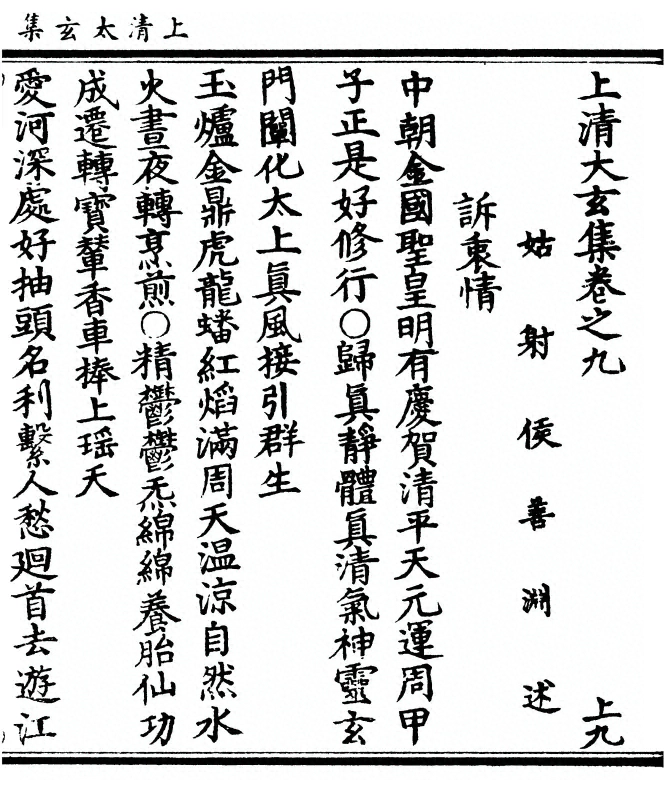 上清太玄集
上清大玄集卷之九
上九
姑射侯善淵述
訴衷情
中朝金國聖皇明有慶賀清平天元運周甲
子正是好修行○歸真靜體真清氣神靈玄
門闡化太上真風接引群生
玉爐金鼎虎龍蟠紅熖滿周天温涼自然水
火晝夜轉烹煎○精鬱鬱炁綿綿養胎仙功
成遷轉寶輦香車捧上瑶天
愛河深處好抽頭名利繫人愁廻首去遊江